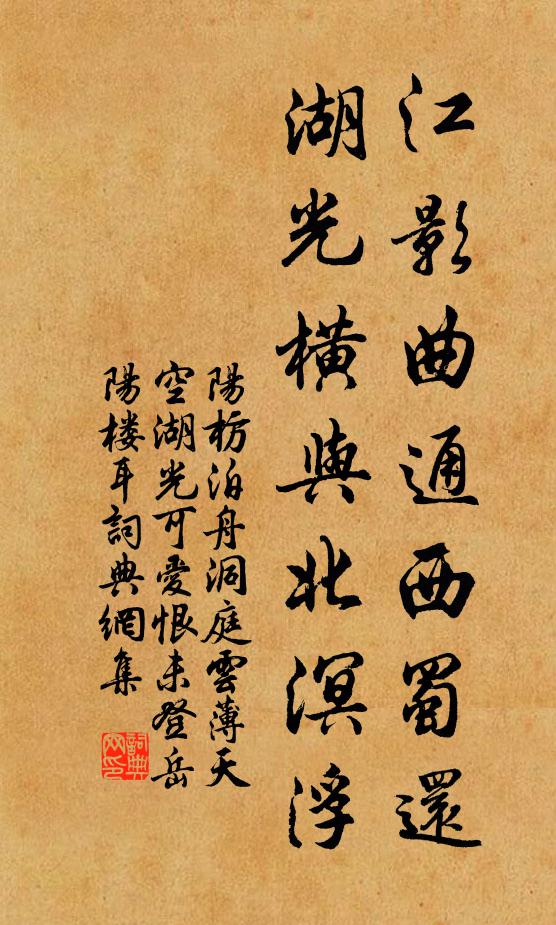 江影曲通西蜀還
湖光橫與北溟浮
陽枋泊舟洞庭雲薄天
空湖光可愛恨未登岳
陽楼耳詞典網集
詞典網印